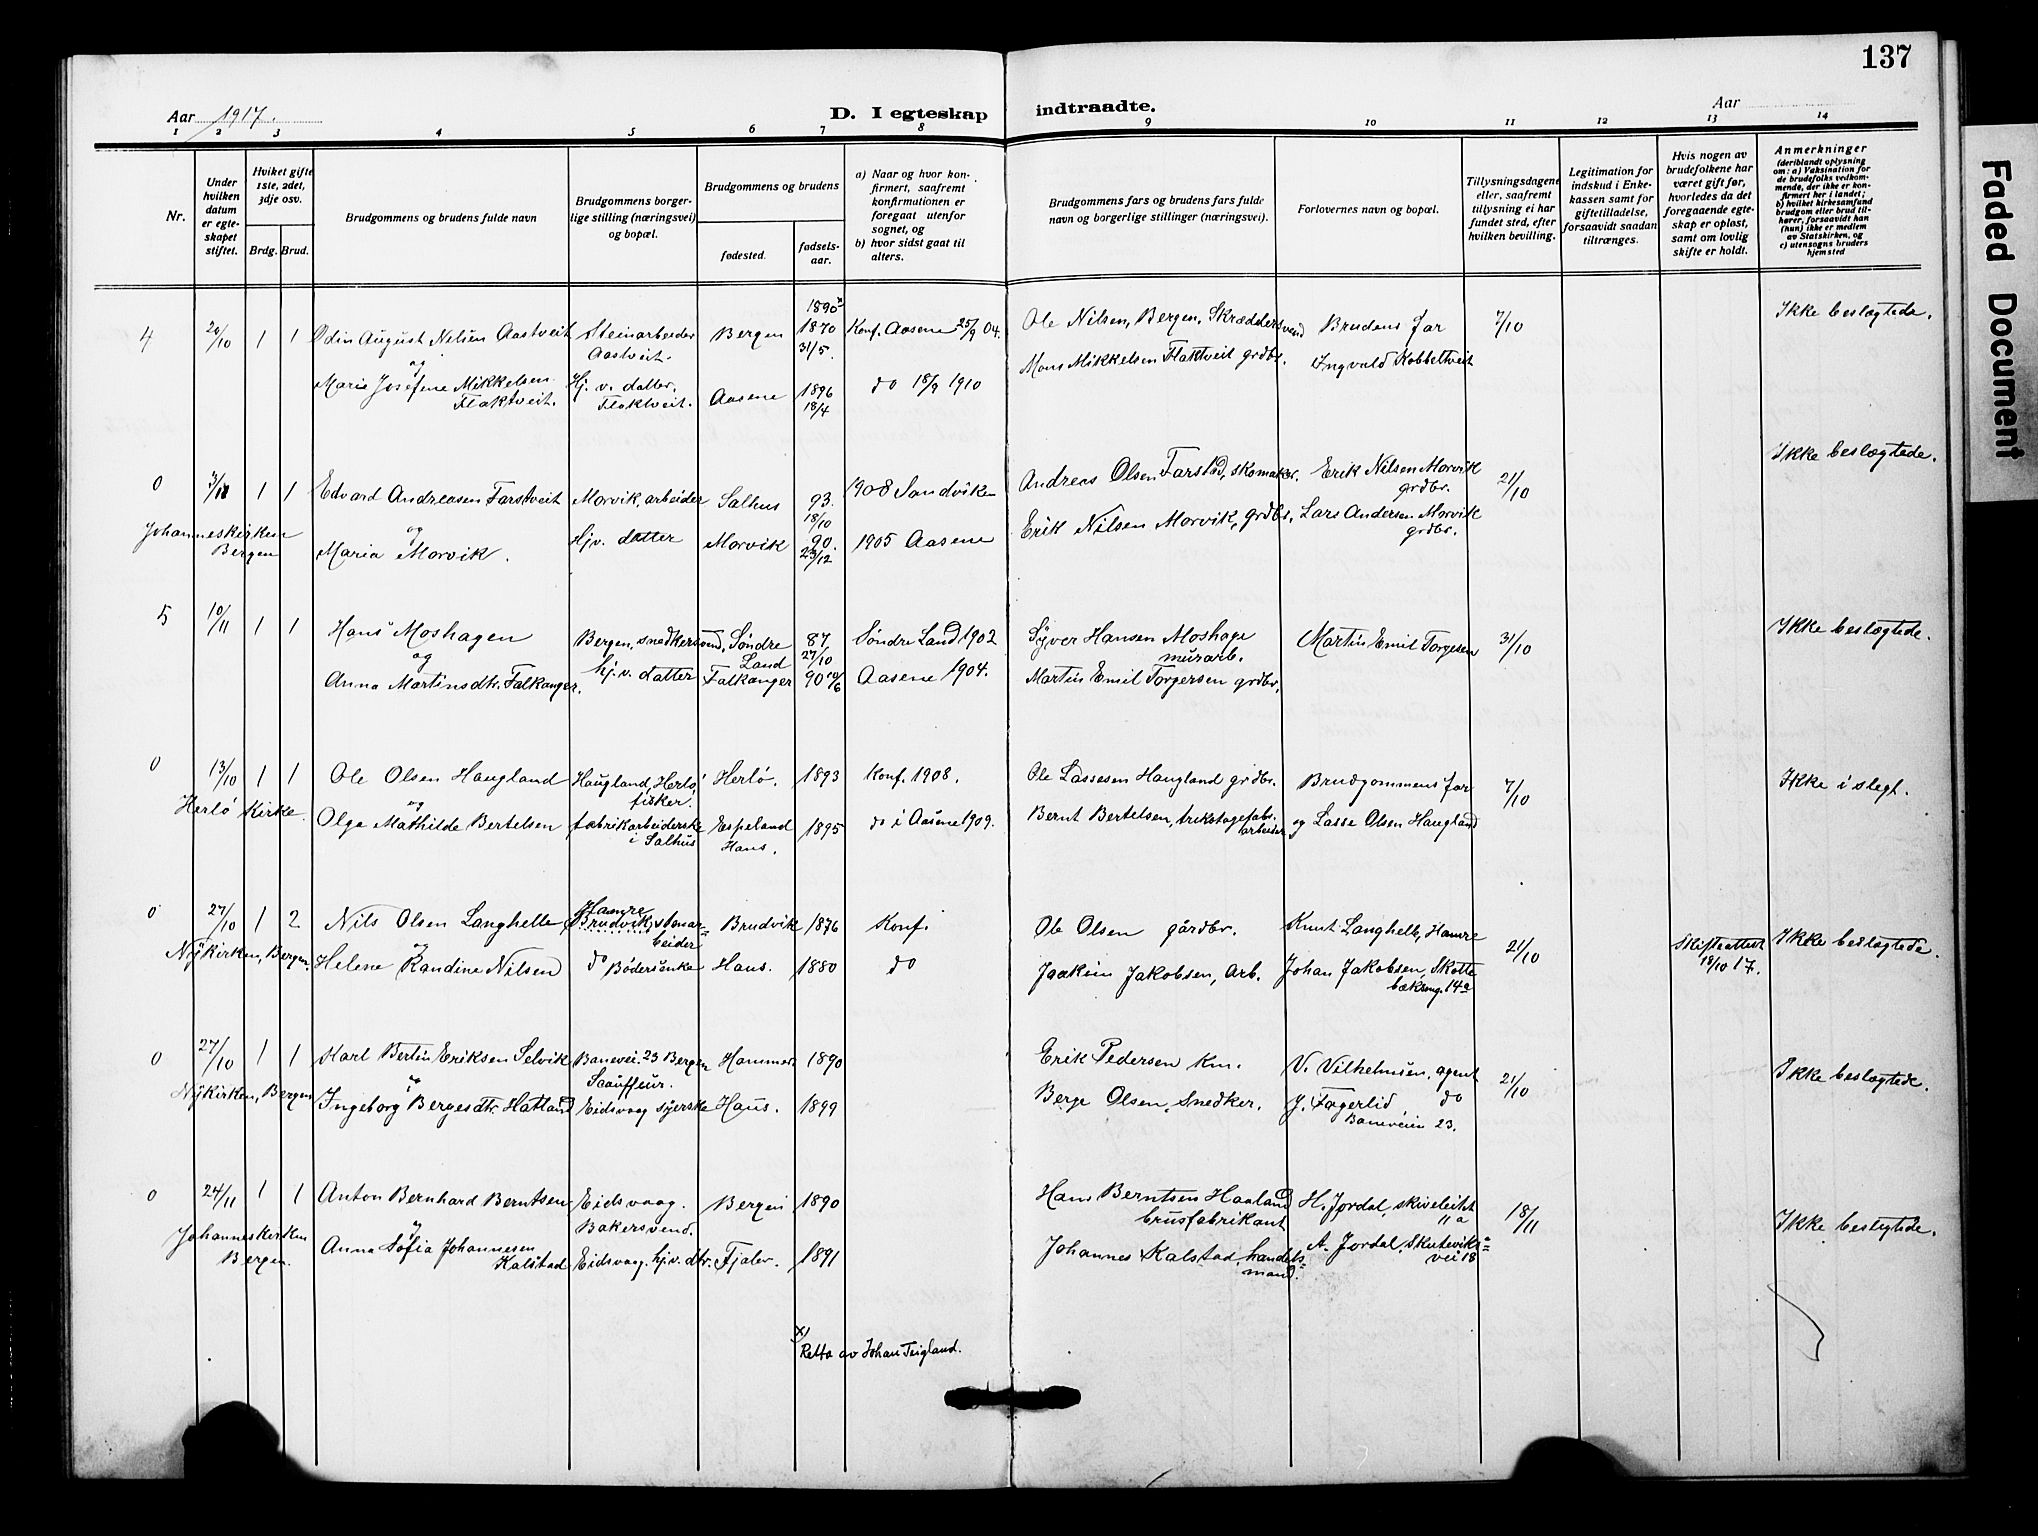 137
Aar 1917. D. I egteskap indtraadte. Aar
1 2 3 4 5 6 7 8 9 10 11 12 13 14
Nr.
Under hvilken datum er egteskapet stiftet.
Hvilket gifte 1ste, 2det, 3dje osv.
Brdg. Brud.
Brudgommens og brudens fulde navn
Brudgommens borgerlige stilling (næringsvei) og bopæl.
Brudgommens og brudens
fødested.
fødselsaar.
a) Naar og hvor konfirmert, saafremt konfirmationen er foregaat utenfor sognet, og
b) hvor sidst gaat til alters.
Brudgommens fars og brudens fars fulde navn og borgerlige stillinger (næringsvei).
Forlovernes navn og bopæl.
Tillysningsdagene eller, saafremt tillysning ei har fundet sted, efter hvilken bevilling.
Legitimation for indskud i Enkekassen samt for giftetilladelse, forsaavidt saadan tiltrænges.
Hvis nogen av brudefolkene har været gift før, hvorledes da det foregaaende egteskap er opløst, samt om lovlig skifte er holdt.
Anmerkninger
(deriblandt oplysning om: a) Vaksination for de brudefolks vedkommende, der ikke er konfirmert her i landet; b) hvilket kirkesamfund brudgom eller brud tilhører, forsaavidt han (hun) ikke er medlem av Statskirken, og c) utensogns bruders hjemsted
4 20/10 1 1 Odin August Nelsen Aastveit Steinarbeider Aastveit. Bergen 1890 x 1870 31/5. Konf. Aasene 25/9 04. Ole Nilsen, Bergen, Skræddersvend Brudens far 7/10 Ikke beslegtede.
og
Marie Josefine Mikkelsen Flaktveit. Hj. v. datter, Flaktveit. Aasene 1896 18/4 do 18/9 1910 Mons Mikkelsen Flaktveit grdbr. Ingvald Kobbeltveit
0 3/11 1 1 Edvard Andreasen Farstveit Morvik, arbeider Salhus 93. 18/10 1908 Sandviken Andreas Olsen Farstad, skomaker. Erik Nilsen Morvik grdbr. 21/10 Ikke beslegtede.
Johanneskirken Bergen
og
Maria Morvik. Hjv. datter Morvik 90. 23/12 1905 Aasene Erik Nilsen Morvik, grdbr. Lars Andersen Morvik grdbr.
5 10/11 1 1 Hans Moshagen Bergen, snedkersvend, Søndre Land 87 27/10 Søndre Land 1902 Syver Hansen Moshage murarb. Martin Emil Torgesen 31/10 Ikke beslegtede.
og
Anna Martinsdtr. Falkanger. hj. v. datter Falkanger 90 10/6 Aasene 1904. Martin Emil Torgersen grdbr.
0 13/10 1 1 Ole Olsen Haugland Haugland, Herlø, fisker. Herlø. 1893 Konf. 1908. Ole Lassesen Haugland grdbr. Brudgommens far 7/10 Ikke i slegt.
Herlø Kirke.
og
Olga Mathilde Bertelsen fabrikarbeiderske i Salhus Espeland Haus. 1895 do i Aasene 1909. Bernt Bertelsen, trikotagefabr. arbeider og Lasse Olsen Haugland
0 27/10 1 2 Nils Olsen Langhelle Hamre Brudvik, stenarbeider Brudvik 1876 Konf. Ole Olsen gårdbr. Knut Langhelle, Hamre 21/10 Skifteattest 18/10 17. Ikke beslegtede.
Nykirken, Bergen.
og
Helene Randine Nilsen do Bødersenke Haus. 1880 do Joakim Jakobsen, Arb. Johan Jakobsen, Skottebæksmg. 14a
0 27/10 1 1 Karl Bertin Eriksen Selvik Banevei. 23 Bergen Scauffeur. Hammer. 1890 Erik Pedersen Km. V. Vilhelmsen, agent 21/10 Ikke beslegtede.
Nykirken, Bergen
og
Ingeborg Bergesdtr. Hatland Eidsvaag syerske Haus. 1899 Berge Olsen, Snedker. J. Fagerlid do Baneveien 23.
0 24/11 1 1 Anton Bernhard Berntsen Eidsvaag. Bakersvend. Bergen 1890 Hans Berntsen Haaland brusfabrikant H. Jordal, skiveleitet 11a 18/11 Ikke beslegtede.
Johanneskirken Bergen.
og
Anna Sofia Johannesen Kalstad Eidsvaag. hj. v. dtr. Fjaler. 1891 Johannes Kalstad, handelsmand. A. Jordal, Skuteviksvei 18
x) Retta av Johan Teigland.
Faded Document